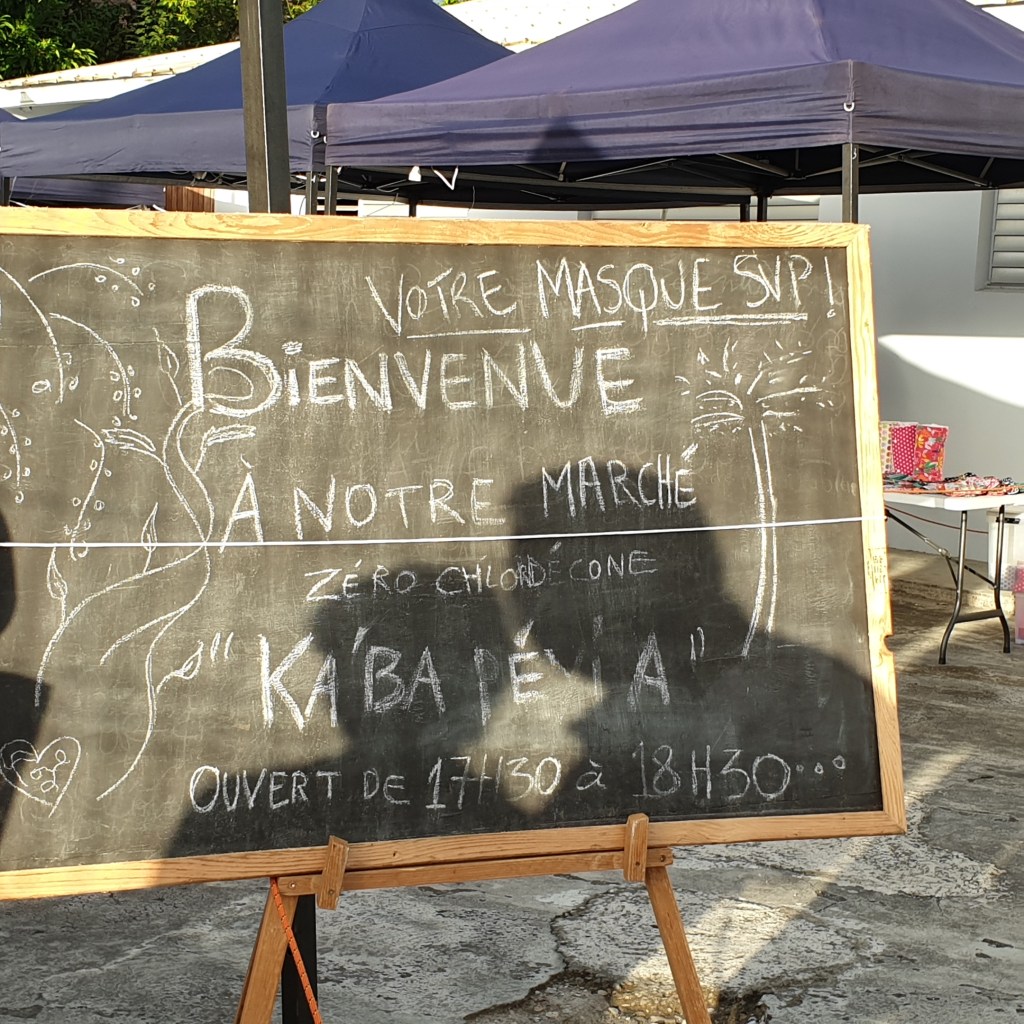 VOTRE MASQUE SVP!
BIENVENUE
À NOTRE MARCHÉ
ZÉRO CHLORDÉCONE
"KA'BA PÉYI A"
OUVERT DE 17H30 à 18H30...